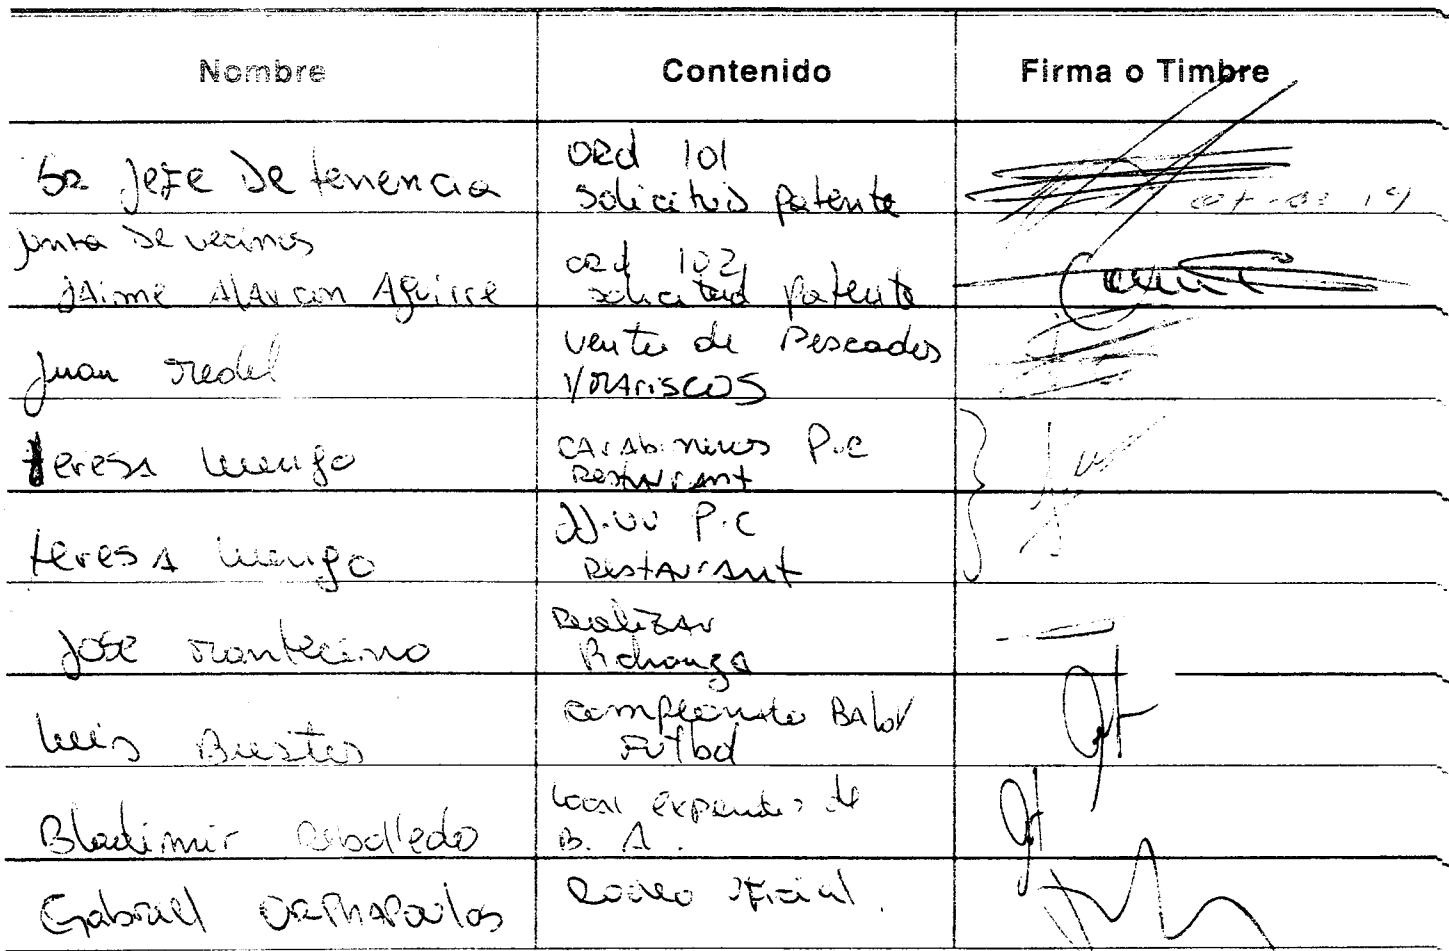 Nombre Contenido Firma o Timbre
SR Jefe De tenencia
ORd 101
Solicitud patente
Junta De vecinos
JAime AlArcon Aguirre
ORd 102
Solicitud patente
Juan
Venta de Pescados
y MAriscos
teresA
CArAbineros P.C
RestAurAnt
teresA
JJ.VV P.C
RestAurAnt
José Montecino
RealizAr
Pichanga
Luis Bustos
CampeonAto BAby
Futbol
Bladimir Rebolledo
local expendio de
B. A.
Gabriel
Rodeo oficial.